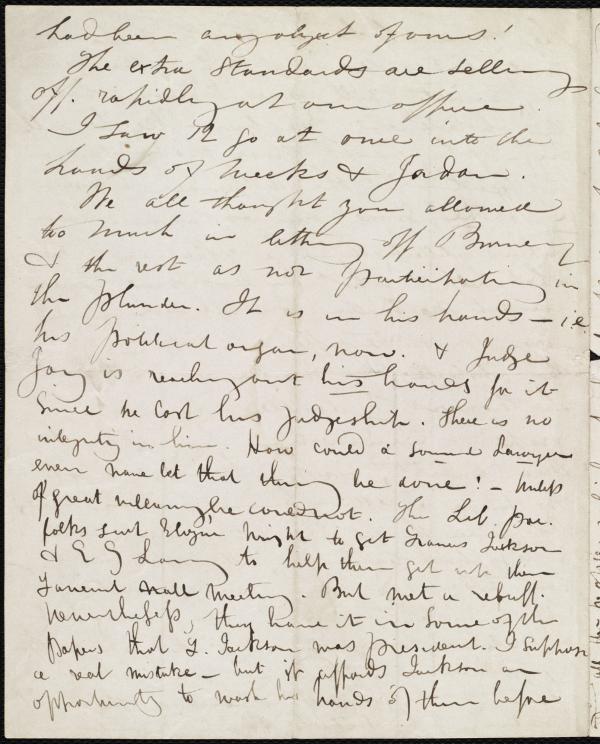 had been any object of ours!
The extra Standards are selling
off. rapidly at our office.
I saw 12 go at once into the
hands of Weeks & Jordan.
We all thought you allowed
too much in letting off Birney
& the rest as not participating in
the plunder. It is in his hands — i.e.
his political organ, now. & Judge
Jay is reaching out his hands for it
since he lost his judgeship. There is no
integrity in him. How could a sound Lawyer
even have let that thing be done! — Unless
of great meaning he could not. The Lib. par.
folks sent Elizur Wright to get Francis Jackson
& E G Loring to help them get up their
Faneuil Hall meeting. But met a rebuff.
Nevertheless, they have it in some of the
papers that F. Jackson was president. I suppose
a real mistake — but it affords Jackson an
opportunity to wash his hands of them before